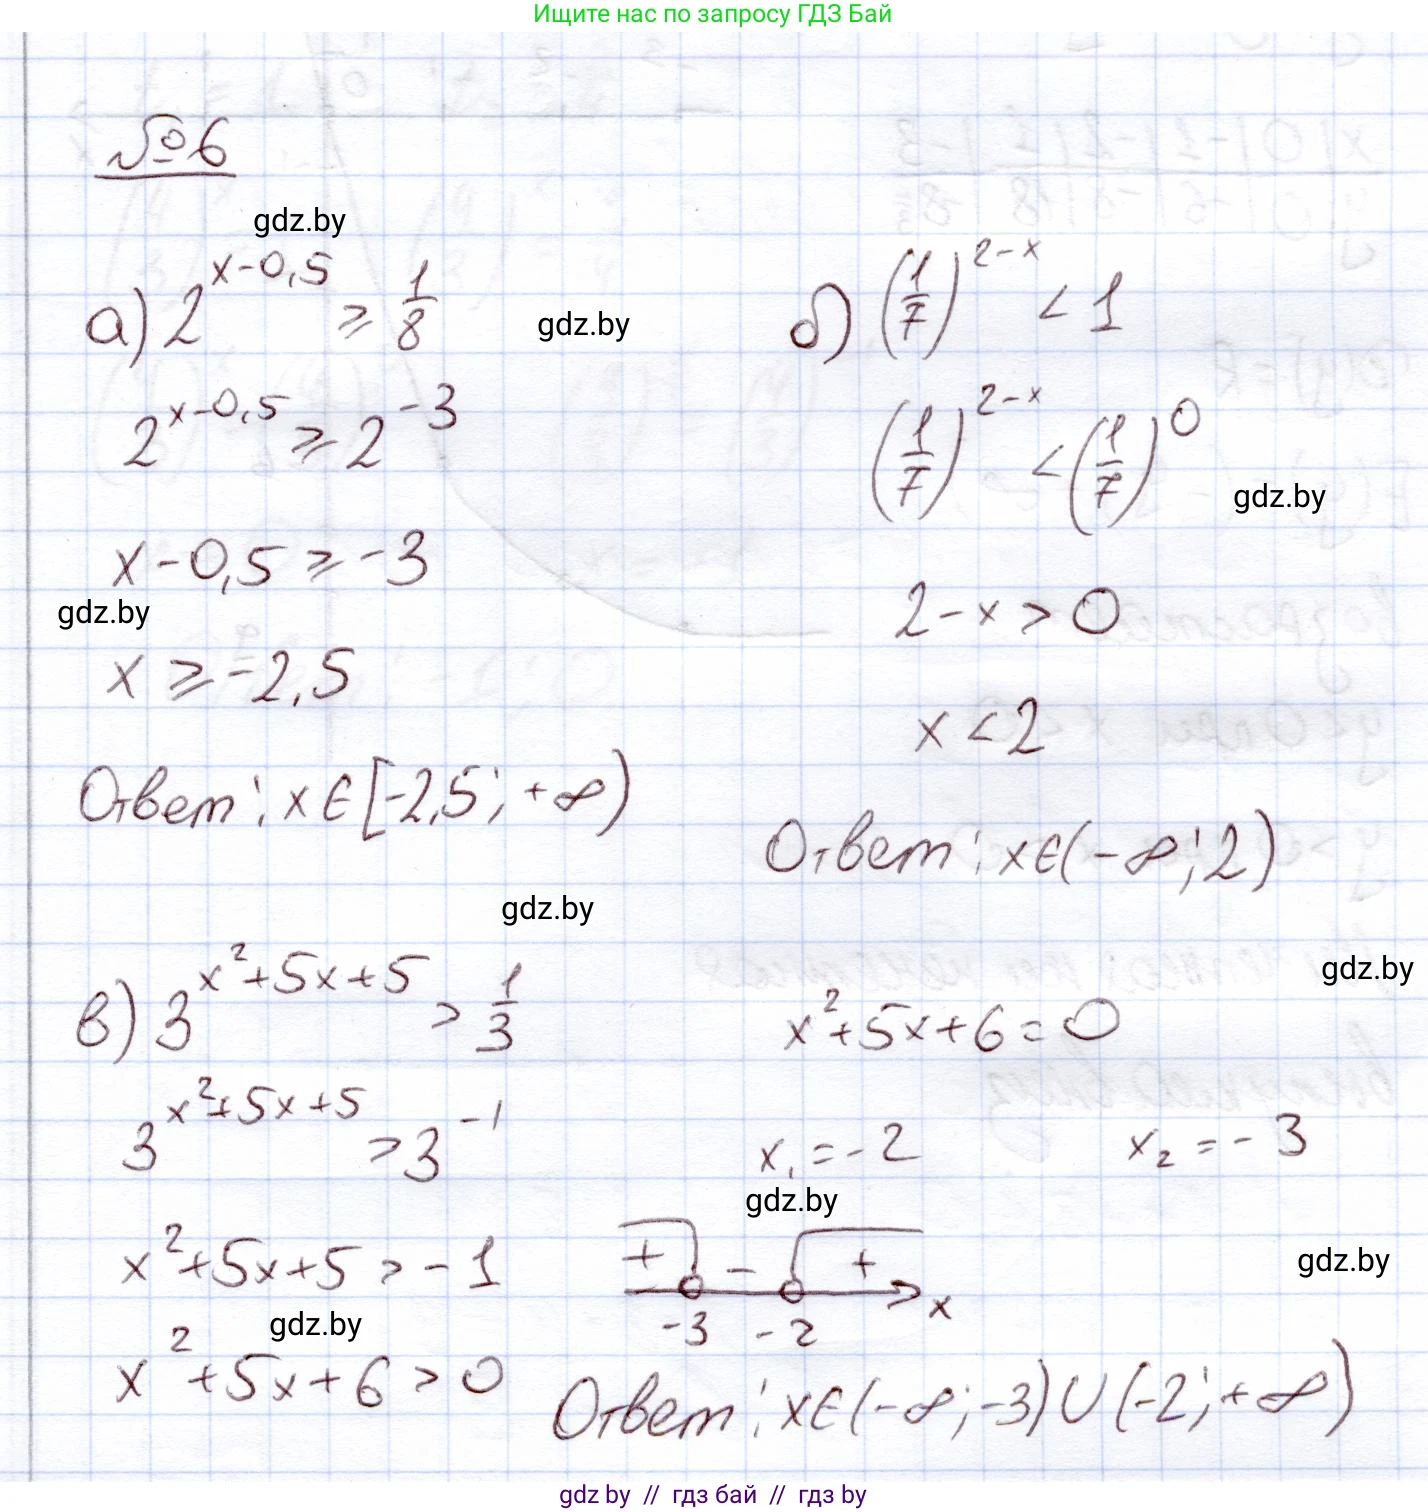 Ищите нас по запросу ГДЗ Бай
№6
gdz.by
а) 2^{x-0,5} ≥ 1/8
gdz.by
2^{x-0,5} ≥ 2^{-3}
x-0,5 ≥ -3
gdz.by
x ≥ -2,5
Ответ: x∈[-2,5; +∞)
б) (1/7)^{2-x} < 1
(1/7)^{2-x} < (1/7)^0
gdz.by
2-x > 0
x < 2
Ответ: x∈(-∞; 2)
gdz.by
gdz.by
в) 3^{x²+5x+5} > 1/3
3^{x²+5x+5} > 3^{-1}
x²+5x+5 > -1
gdz.by
x²+5x+6 > 0
x²+5x+6=0
x₁=-2 x₂=-3
gdz.by
+ - +
gdz.by
-3 -2 x
Ответ: x∈(-∞; -3)∪(-2; +∞)
gdz by // гдз бай // гдз by